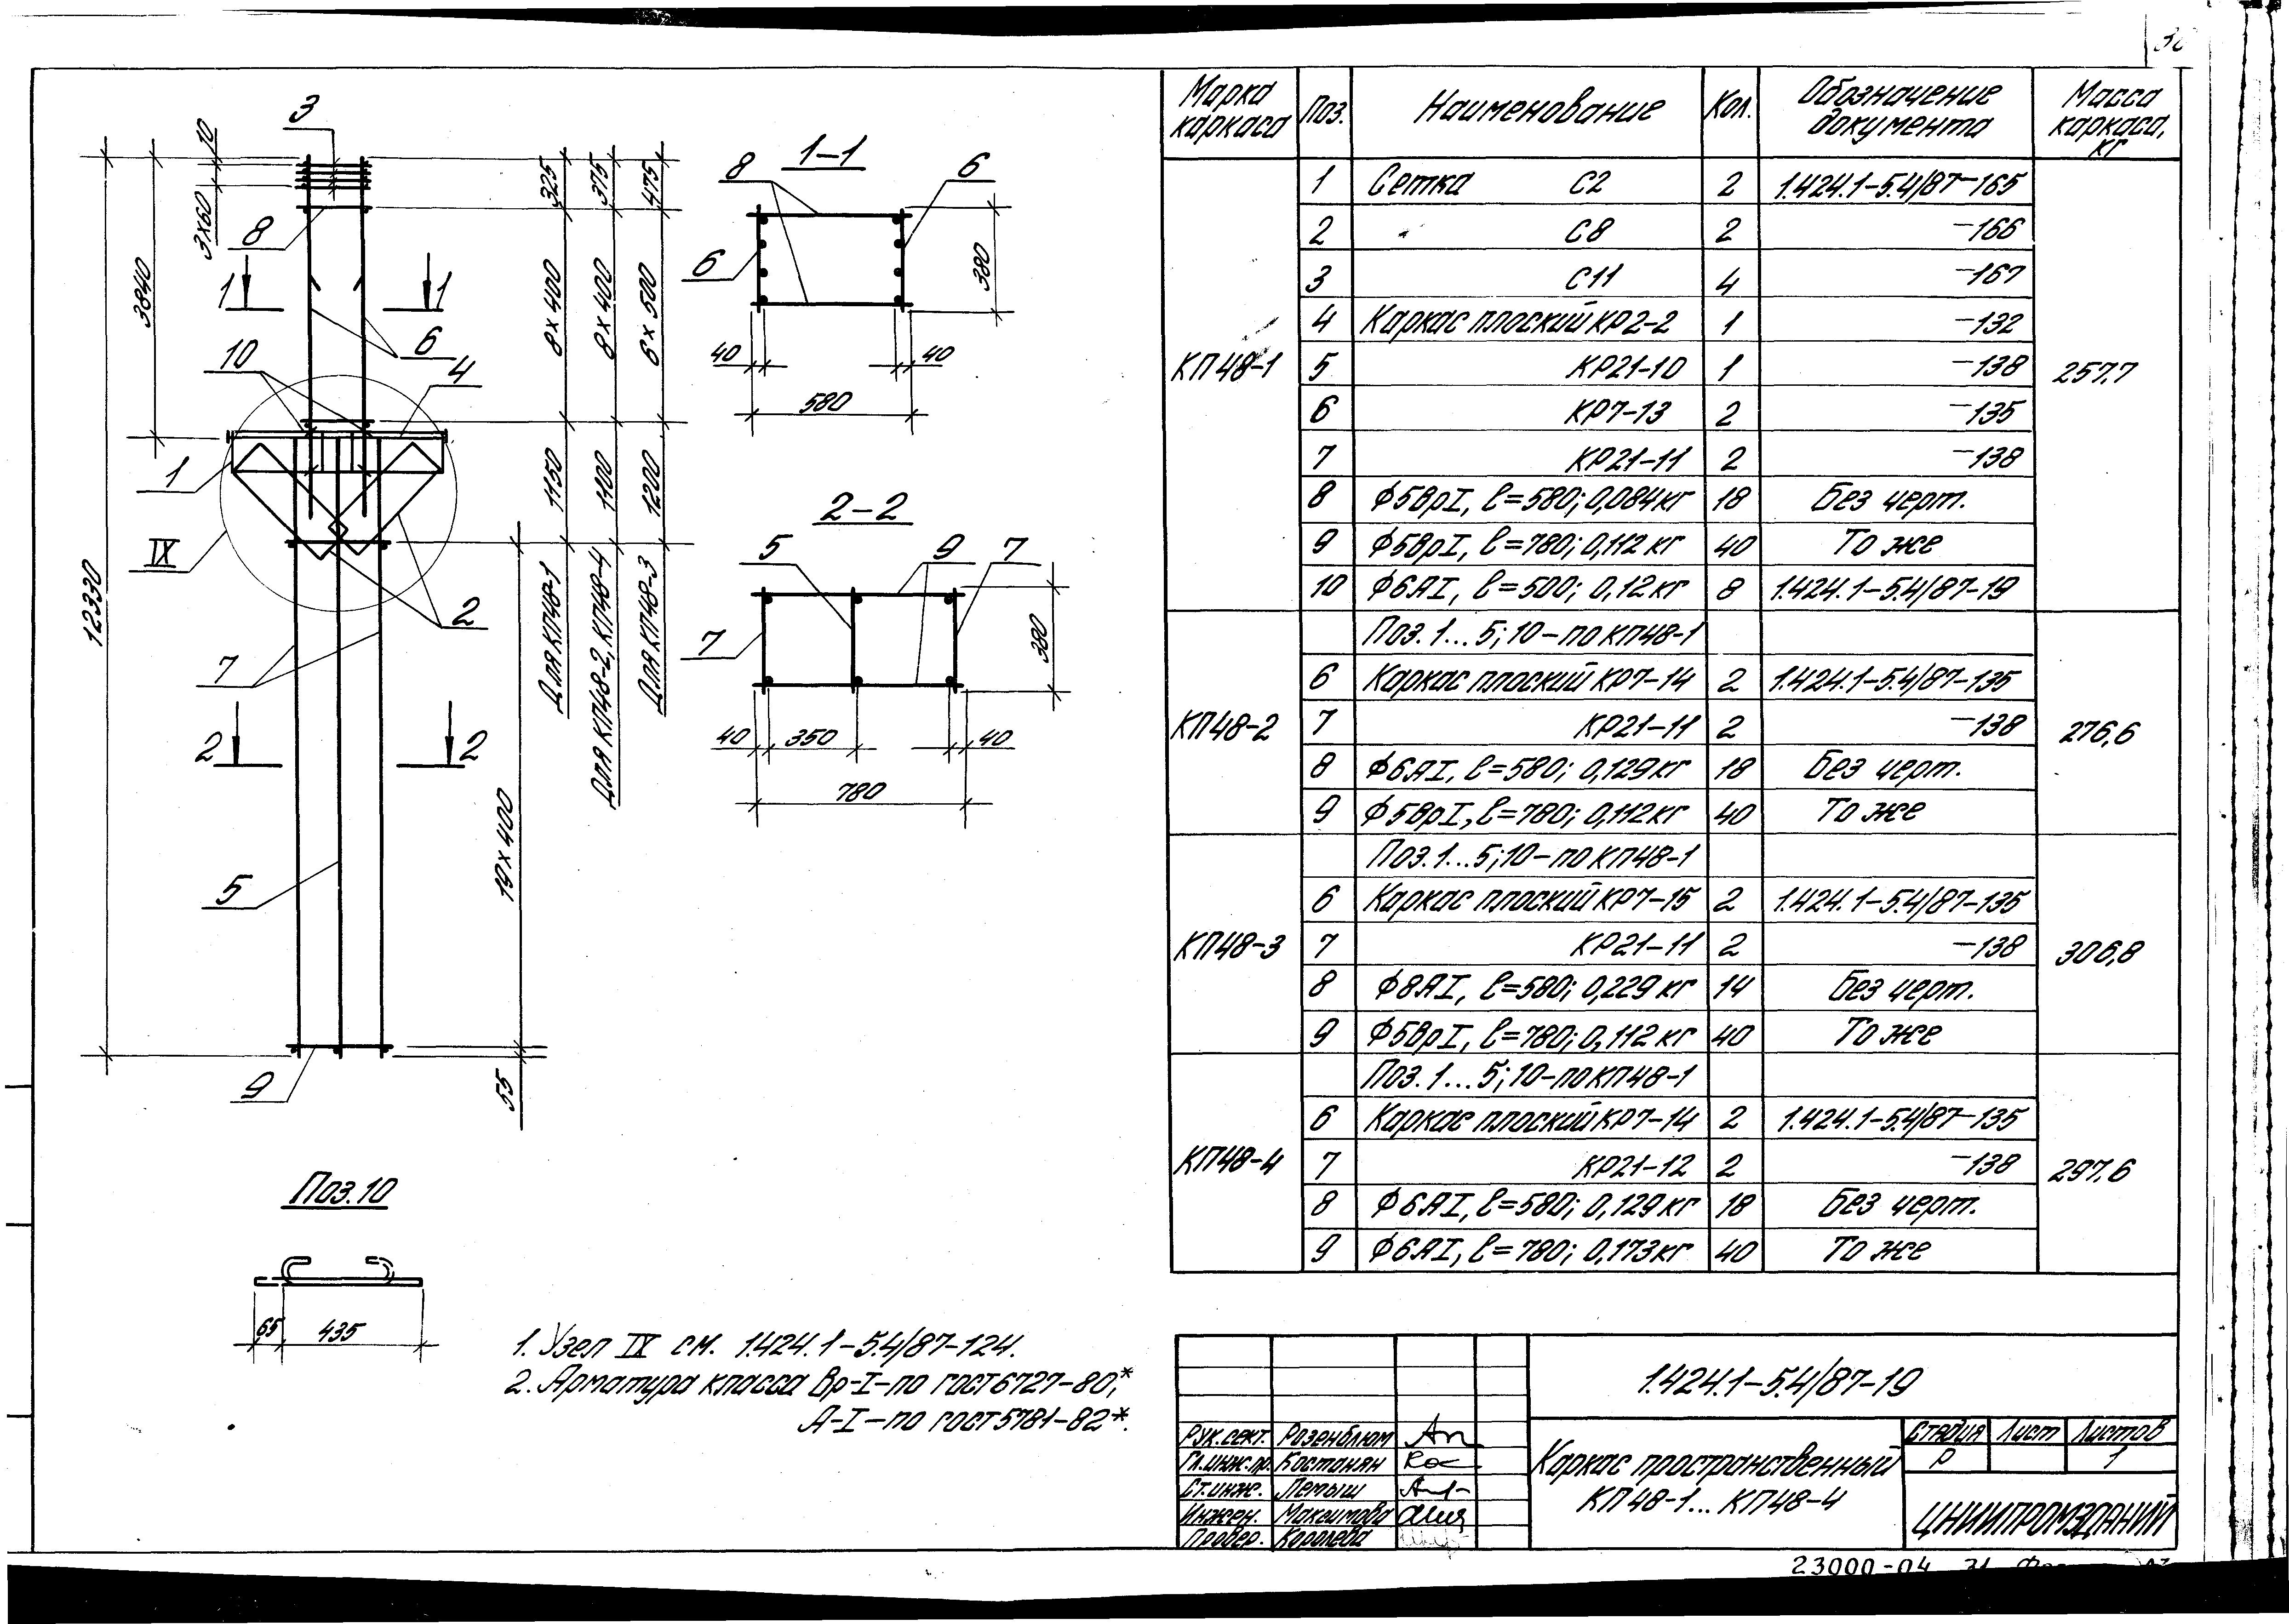 3
10
3×60
8
3840
12330
1
1
6
10
4
1
IX
2
7
2
2
5
9
325
375
475
8×400
8×400
6×500
1150
1100
1200
Для КП48-1
Для КП48-2, КП48-4
Для КП48-3
19×400
55
1-1
8
6
6
380
40
40
580
2-2
5
9
7
7
380
40
350
40
780
Поз.10
65
435
1. Узел IX см. 1.424.1-5.4/87-124.
2. Арматура класса Вр-I-по ГОСТ 6727-80*,
А-I-по ГОСТ 5781-82*.
Марка каркаса Поз. Наименование Кол. Обозначение документа Масса каркаса, кг
КП48-1 257,7
1 Сетка С2 2 1.424.1-5.4/87-165
2 " С8 2 -166
3 С11 4 -167
4 Каркас плоский КР2-2 1 -132
5 КР21-10 1 -138
6 КР7-13 2 -135
7 КР21-11 2 -138
8 Ф5ВрI, l=580; 0,084кг 18 Без черт.
9 Ф5ВрI, l=780; 0,112кг 40 То же
10 Ф6АI, l=500; 0,12кг 8 1.424.1-5.4/87-19
КП48-2 276,6
Поз. 1...5; 10-по КП48-1
6 Каркас плоский КР7-14 2 1.424.1-5.4/87-135
7 КР21-11 2 -138
8 Ф6АI, l=580; 0,129кг 18 Без черт.
9 Ф5ВрI, l=780; 0,112кг 40 То же
КП48-3 306,8
Поз. 1...5; 10-по КП48-1
6 Каркас плоский КР7-15 2 1.424.1-5.4/87-135
7 КР21-11 2 -138
8 Ф8АI, l=580; 0,229кг 14 Без черт.
9 Ф5ВрI, l=780; 0,112кг 40 То же
КП48-4 297,6
Поз. 1...5; 10-по КП48-1
6 Каркас плоский КР7-14 2 1.424.1-5.4/87-135
7 КР21-12 2 -138
8 Ф6АI, l=580; 0,129кг 18 Без черт.
9 Ф6АI, l=780; 0,173кг 40 То же
1.424.1-5.4/87-19
Рук.сект. Розенблюм
Гл.инж.пр. Бостанян
Ст.инж. Лемыш
Инжен. Максимова
Провер. Королева
Каркас пространственный
КП48-1...КП48-4
Стадия Лист Листов
Р 1
ЦНИИПРОМЗДАНИЙ
23000-04 31